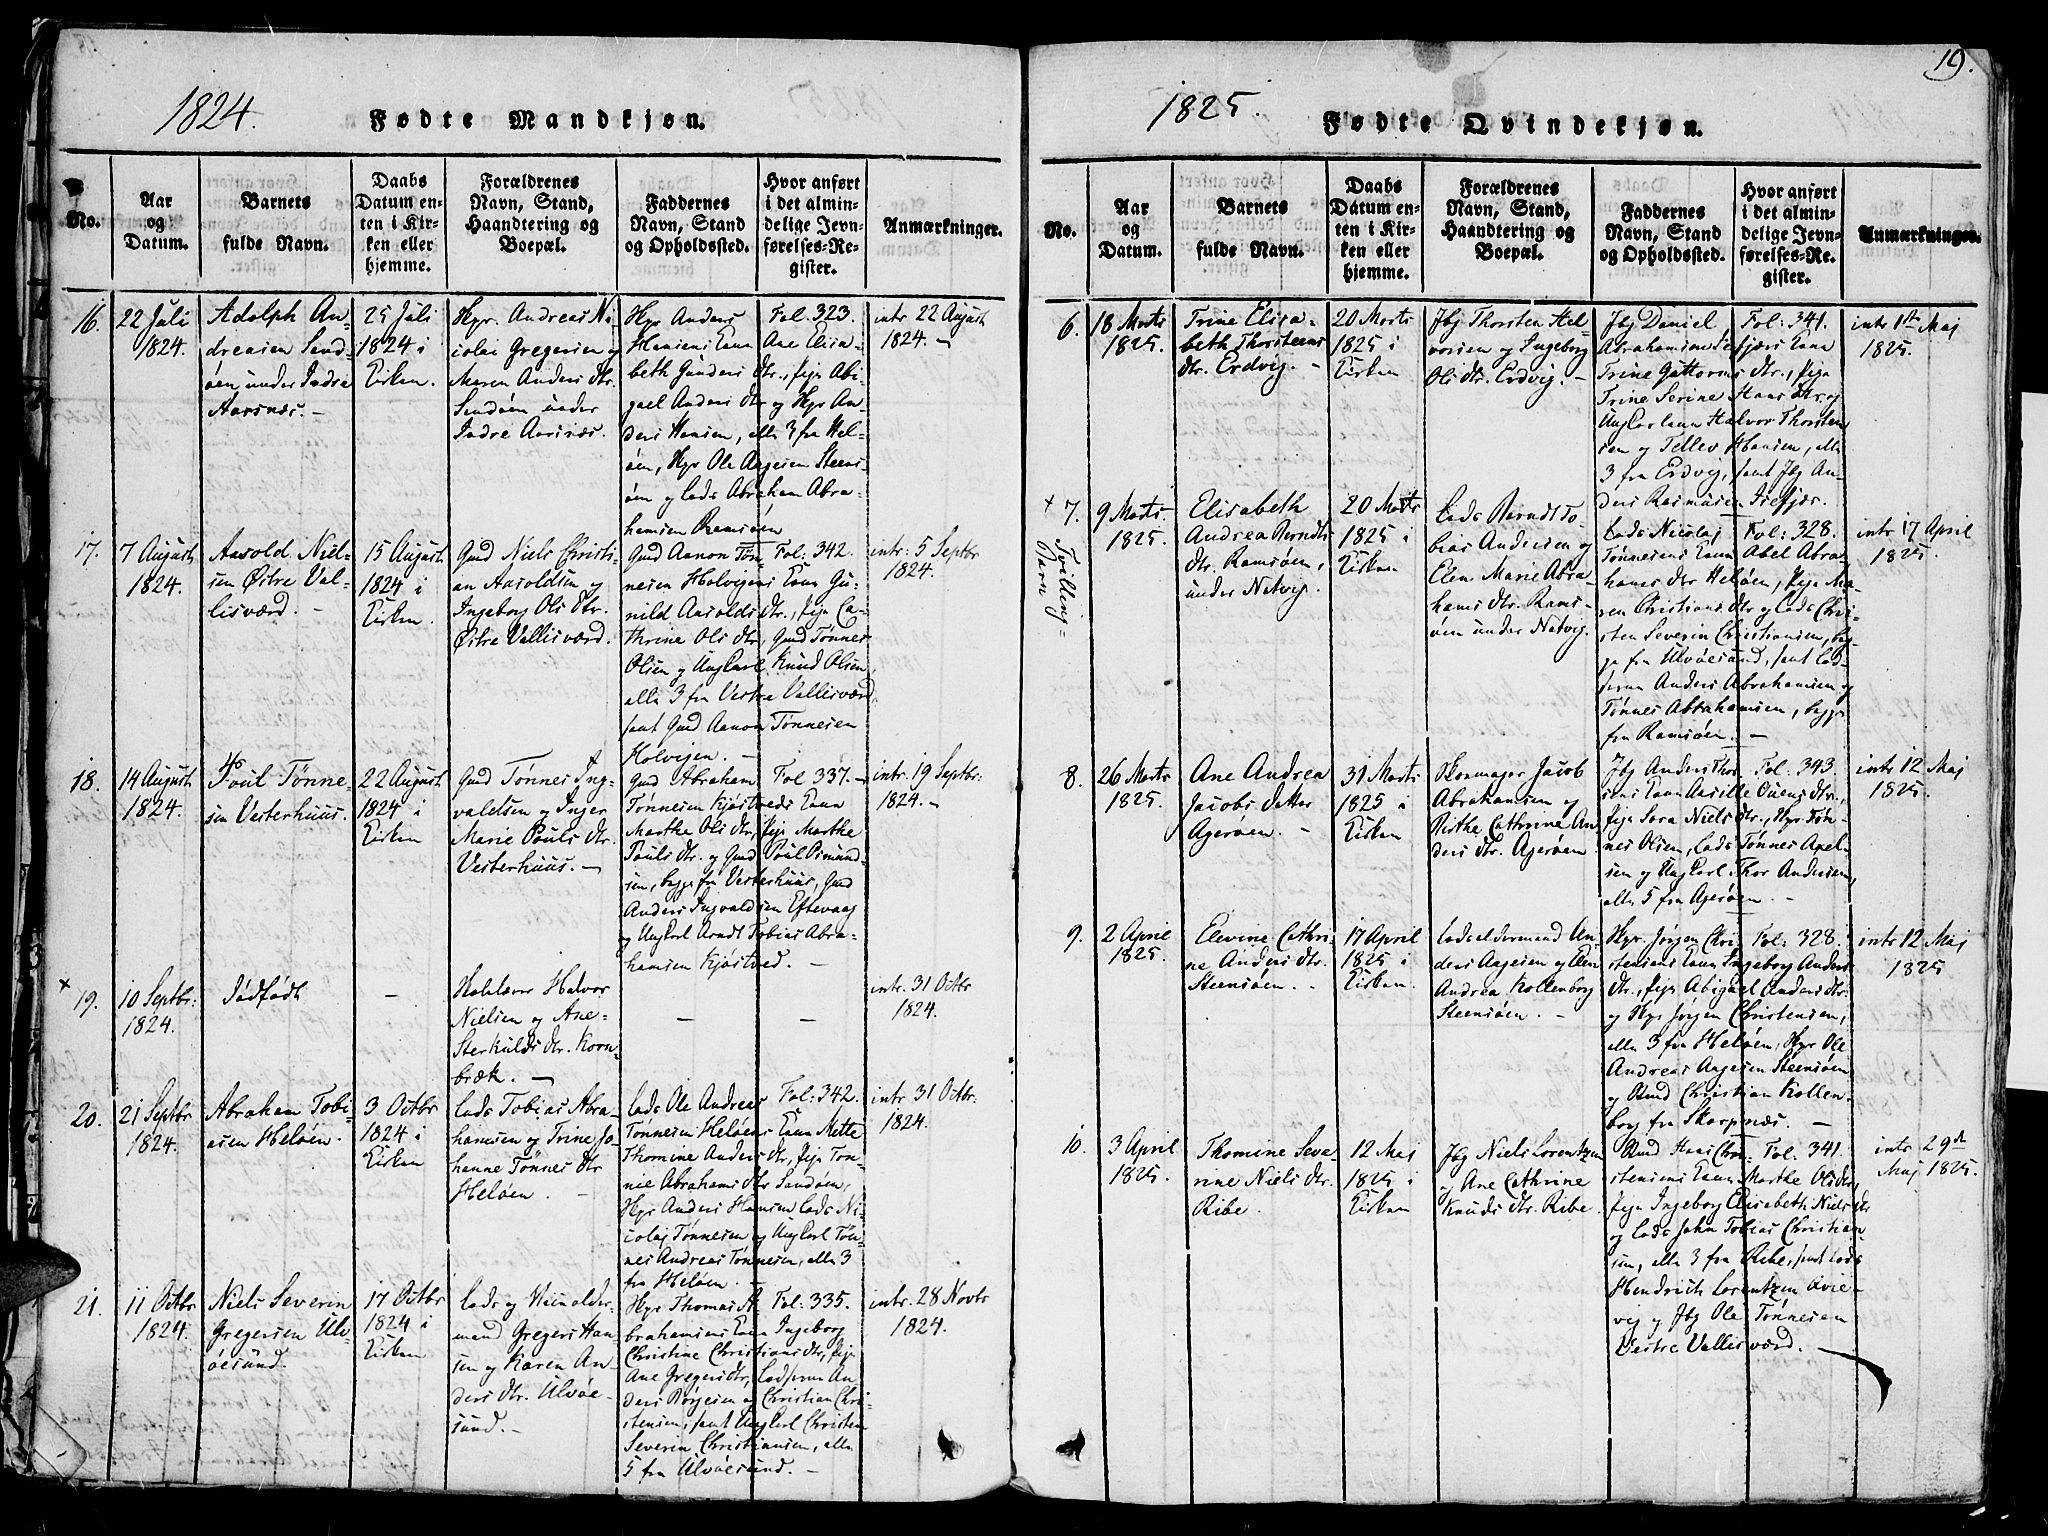 1824.
Fødte Mandkjøn.
No.
Aar
og
Datum.
Barnets
fulde Navn.
Daabs
Datum en-
ten i Kir-
ken eller
hjemme.
Forældrenes
Navn, Stand,
Haandtering og
Boepæl.
Faddernes
Navn, Stand
og Opholdssted.
Hvor anført
i det almin-
delige Jevn-
førelses-Re-
gister.
Anmærkninger.
16.
22 Juli
1824.
Adolph An-
dreasen Sand-
øen under Indre
Aarsnæs. -
25 Juli
1824 i
Kirken.
Hpr. Andreas Ni-
colai Gregersen og
Maren Anders dtr.
Sandøen under
Indre Aarsnæs.
Hpr Anders
Hansens Kone Ane Elisa-
beth Gunders dtr., Pige Abi-
gael Anders dtr og Hpr An-
ders Hansen, alle 3 fra Hel-
øen, Hpr Ole Aagesen Steens-
øen og Lods Abraham Abra-
hamsen Ramsøen
Fol. 323.
intr 22 August
1824. -
17.
7 August
1824.
Aasold Niel-
sen Østre Val-
lisværd. -
15 August
1824 i
Kirken.
Gmd Niels Christi-
an Aasoldsen og
Ingeborg Ols dtr.
Østre Vallisværd.
Gmd Aanon Tøn-
nesen Holvigens Kone Gu-
nild Aasolds dtr., Pige Ca-
thrine Ols dtr, Gmd Tønnes
Olsen og Ung Carl Knud Olsen
alle 3 fra Vestre Vallisværd,
samt Gmd Aanon Tønnesen
Holvigen. -
Fol: 342.
intr: 5 Septbr
1824.
18.
14 August
1824.
Poul Tønne-
sen Vesterhuus.
22 August
1824 i
Kirken
Gmd Tønnes Ing-
valdsen og Inger
Marie Pouls dtr.
Vesterhuus. -
Gmd Abraham
Tønnesen Kjøstveds Kone
Marthe Ols dtr, Pige Marthe
Pouls dtr. og Gmd Poul Osmund-
sen, begge fra Vesterhuus, Gmd
Anders Ingvaldsen Eftevaag
og Ung Carl Arndt Tobias Abra-
hamsen Kjøstved. -
Fol 337. -
intr. 19 Septbr:
1824. -
+
19.
10 Septbr:
1824.
Dødfødt
-
Halvor
Nielsen og Ane
Sterkulds dtr. Korn-
bræk. -
-
-
intr. 31 Octbr
1824.
20.
21 Septbr
1824.
Abraham Tobi-
asen Heløen.
3 Octbr
1824 i
Kirken
Lods Tobias Abra-
hamsen og Trine Jo-
hanne Tønnes dtr
Heløen. -
Lods Ole Andreas
Tønnesen Heløens Kone Mette
Thomine Anders dtr, Pige Ton-
nie Abrahams dtr Sandøen,
Hpr Anders Hansen Lods Ni-
colaj Tønnesen og Ung Carl Tøn-
nes Andreas Tønnesen, alle 3
fra Heløen. -
Fol: 342.
intr 31 Octbr:
1824.
21.
11 Octbr
1824.
Niels Severin
Gregersen Ulv-
øesund.
17 Octbr
1824 i
Kirken
Lods og
mand Gregers Han-
sen og Karen An-
ders dtr. Ulvøe-
sund. -
Hpr Thomas A-
brahamsens Kone Ingeborg
Christine Christians dtr, Pige
Ane Gregers dtr, Lodserne An-
ders Børgesen og Christian Chri-
stensen, samt Ung Carl Christen
Severin Christiansen, alle
5 fra Ulvøesund. -
Fol: 335.
intr. 28 Novbr
1824.
19.
1825.
Fødte Qvindekjøn.
No.
Aar
og
Datum.
Barnets
fulde Navn.
Daabs
Datum en-
ten i Kir-
ken eller
hjemme.
Forældrenes
Navn, Stand,
Haandtering og
Boepæl.
Faddernes
Navn, Stand
og Opholdssted.
Hvor anført
i det almin-
delige Jevn-
førelses-Re-
gister.
Anmærkninger.
6.
18 Marts
1825.
Trine Elisa-
beth Thorstens
dtr. Erdvig. -
20 Marts
1825 i
Kirken
Jbg Thorsten Hal-
vorsen og Ingeborg
Ols dtr. Erdvig. -
Jbg Daniel
Abrahamsen Isefjærs Kone
Trine Guttorms dtr., Pige
Trine Serine Hans dtr og
Ung Carlene Halvor Thorsten-
sen og Tellev Hansen, alle
3 fra Erdvig, samt Jbg An-
ders Rasmusen Isefjær.
Fol: 341.
intr 1ste Maj
1825.
+ 7.
Tvilling-
Barn
9 Marts
1825.
Elisabeth
Andrea Berndts
dtr. Ramsøen,
under Natvig.
20 Marts
1825 i
Kirken
Lods Berndt To-
bias Andersen og
Elen Marie Abra-
hams dtr. Rams-
øen under Natvig.
Lods Nicolaj
Tønnesens Kone Abel Abra-
hams dtr Heløen, Pige Ma-
ren Christians dtr og Lods Chri-
sten Severin Christiansen, beg-
ge fra Ulvøesund, samt Lod-
serne Anders Abrahamsen og
Tønnes Abrahamsen, begge
fra Ramsøen. -
Fol: 328.
intr 17 April
1825.
8.
26 Marts
1825.
Ane Andrea
Jacobs datter
Agerøen. -
31 Marts
1825 i
Kirken
Skomager Jacob
Abrahamsen og
Birthe Cathrine An-
ders dtr. Agerøen
Jbg Anders Thor-
sens Kone Aasille Ouens dtr.,
Pige Sara Niels dtr., Hpr Tøn-
nes Olsen, Lods Tønnes Axel-
sen og Ung Carl Thor Andersen,
alle 5 fra Agerøen. -
Fol: 343.
intr 12 Maj
1825.
9.
2 April
1825.
Elevine Cathri-
ne Anders dtr.
Steensøen. -
17 April
1825 i
Kirken.
Lodsoldermand An-
ders Aagesen og Elen
Andrea Kollenborg
Steensøen. -
Hpr. Jørgen Chri-
stensens Kone Ingeborg Anders
dtr., Pige Abigael Anders dtr.
og Hpr Jørgen Christensen,
alle 3 fra Heløen, Hpr Ole
Andreas Aagesen Steensøen
og Gmd Christian Kollen-
borg fra Skarpnæs. -
Fol: 328.
intr 12 Maj
1825
10.
3 April
1825.
Thomine Seve-
rine Niels dtr.
Ribe.
12 Maj
1825 i
Kirken
Jbg Niels Lorentzen
og Ane Cathrine
Knuds dtr. Ribe.
Gmd Hans Chri-
stensens Kone Marthe Ols dtr,
Pige Ingeborg Elisabeth Niels dtr
og Lods John Tobias Christian-
sen, alle 3 fra Ribe, samt Lods
Hendrich Lorentzen Qvie-
vig og Jbg Ole Tønnesen
Vestre Vallisværd. -
Fol. 341.
intr 29de
Maj 1825.